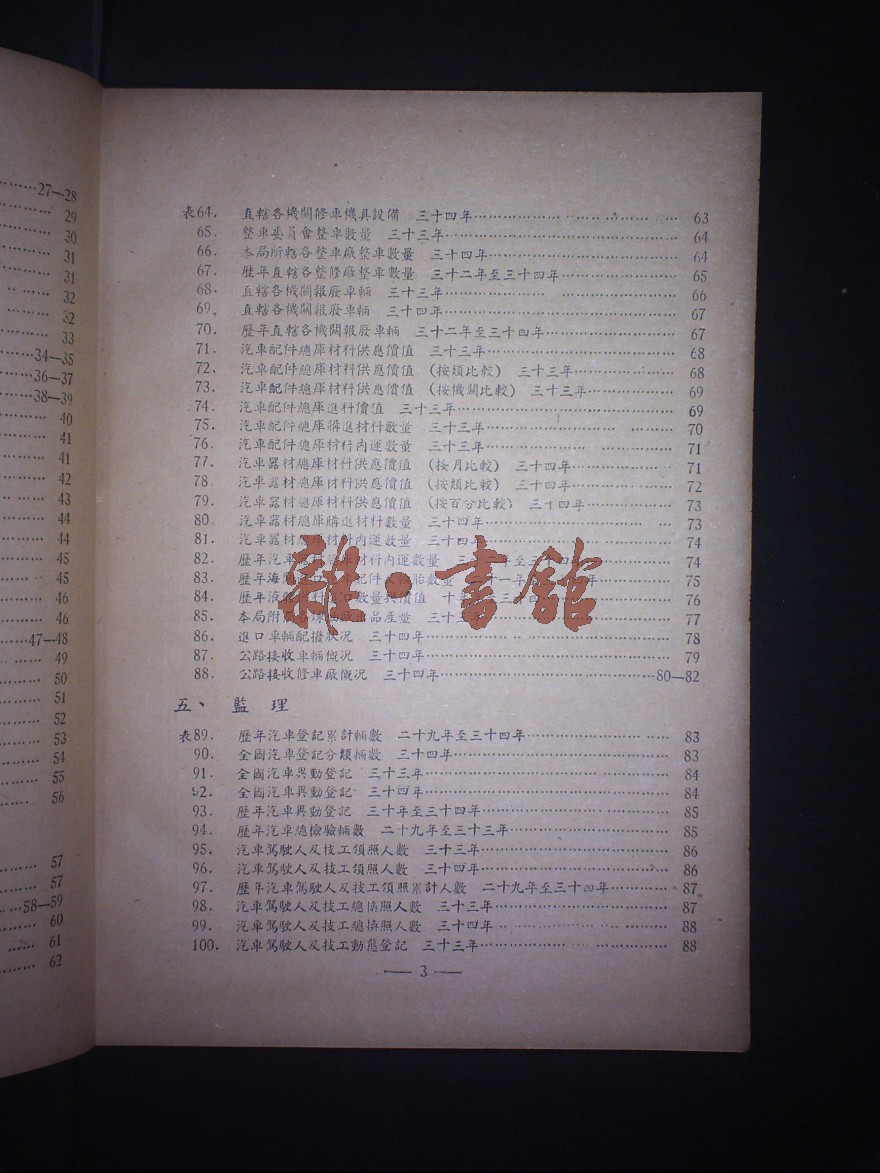 27—28
29
30
31
31
32
32
33
34—35
36—37
38—39
40
41
41
42
43
44
44
45
45
46
46
47—48
49
50
51
52
53
54
55
56
57
57
58—59
60
61
62
表64. 直轄各機關修車機具設備 三十四年 63
65. 整車委員會整車數量 三十三年 64
66. 本局所轄各整車廠整車數量 三十四年 64
67. 歷年直轄各整修廠整車數量 三十二年至三十四年 65
68. 直轄各機關報廢車輛 三十三年 66
69. 直轄各機關報廢車輛 三十四年 67
70. 歷年直轄各機關報廢車輛 三十二年至三十四年 67
71. 汽車配件總庫材料供應價值 三十三年 68
72. 汽車配件總庫材料供應價值 (按類比較) 三十三年 68
73. 汽車配件總庫材料供應價值 (按機關比較) 三十三年 69
74. 汽車配件總庫進料價值 三十三年 69
75. 汽車配件總庫購進材料數量 三十三年 70
76. 汽車配件總庫材料內運數量 三十三年 71
77. 汽車器材總庫材料供應價值 (按月比較) 三十四年 71
78. 汽車器材總庫材料供應價值 (按類比較) 三十四年 72
79. 汽車器材總庫材料供應價值 (按百分比較) 三十四年 73
80. 汽車器材總庫購進材料數量 三十四年 73
81. 汽車器材總庫材料內運數量 三十四年 74
82. 歷年汽車材料內運數量 三 年至三 74
83. 歷年海 口 配件 胎數量 十一年 年 75
84. 歷年液 口數量與價值 十年 三十四 76
85. 本局附 出品產量 三十三 77
86. 進口車輛配撥狀況 三十四年 78
87. 公路接收車輛概況 三十四年 79
88. 公路接收修車廠概況 三十四年 80—82
雜·書館
五、 監理
表89. 歷年汽車登記累計輛數 二十九年至三十四年 83
90. 全國汽車登記分類輛數 三十四年 83
91. 全國汽車異動登記 三十三年 84
92. 全國汽車異動登記 三十四年 84
93. 歷年汽車異動登記 三十年至三十四年 85
94. 歷年汽車總檢驗輛數 二十九年至三十三年 85
95. 汽車駕駛人及技工領照人數 三十三年 86
96. 汽車駕駛人及技工領照人數 三十四年 86
97. 歷年汽車駕駛人及技工領照累計人數 二十九年至三十四年 87
98. 汽車駕駛人及技工總換照人數 三十三年 87
99. 汽車駕駛人及技工總換照人數 三十四年 88
100. 汽車駕駛人及技工動態登記 三十三年 88
— 3 —